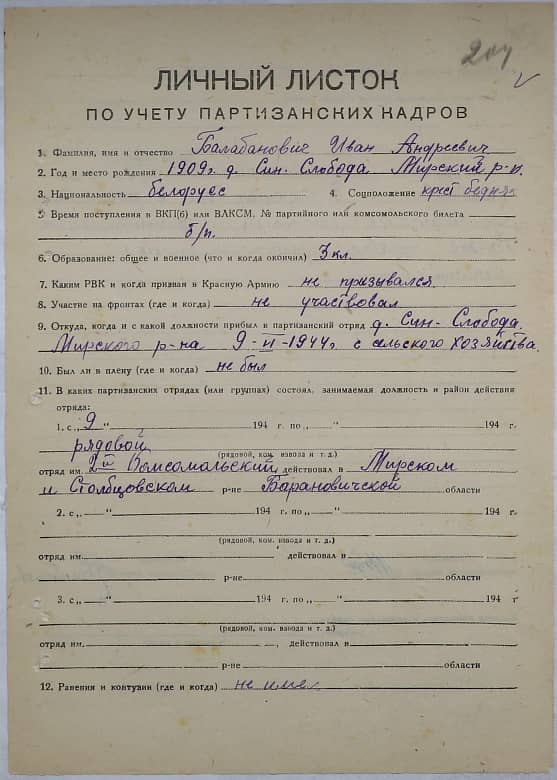 204
ЛИЧНЫЙ ЛИСТОК
ПО УЧЕТУ ПАРТИЗАНСКИХ КАДРОВ
1. Фамилия, имя и отчество Балабанович Иван Андреевич
2. Год и место рождения 1909г. д. Син. Слобода Мирский р-н.
3. Национальность белорус 4. Соцположение крест бедняк
5 Время поступления в ВКП(б) или ВЛКСМ, № партийного или комсомольского билета
б/п.
6. Образование: общее и военное (что и когда окончил) 3 кл.
7. Каким РВК и когда призван в Красную Армию не призывался.
8. Участие на фронтах (где и когда) не участвовал
9. Откуда, когда и с какой должности прибыл в партизанский отряд д. Син-Слобода.
Мирского р-на 9-II-1944г. с сельского хозяйства.
10. Был ли в плену (где и когда) не был
11. В каких партизанских отрядах (или группах) состоял, занимаемая должность и район действия
отряда:
1. с „9 " 194 г. по „ " 194 г.
рядовой
(рядовой, ком. взвода и т. д.)
отряд им. 2й Комсомольский действовал в Мирском
и Столбцовском р-не Барановичской области
2. с „ " 194 г. по „ " 194 г.
(рядовой, ком. взвода и т. д.)
отряд им. действовал в
р-не области
3. с „ " 194 г. по „ " 194 г
(рядовой, ком. взвода и т. д.)
отряд им. , действовал в
р-не области
12. Ранения и контузии (где и когда) не имел.